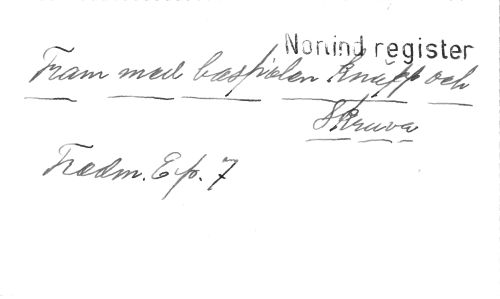 Nonind register
Fram med basfiolen knäpp och
Skruva
Tradm. Ep. 7